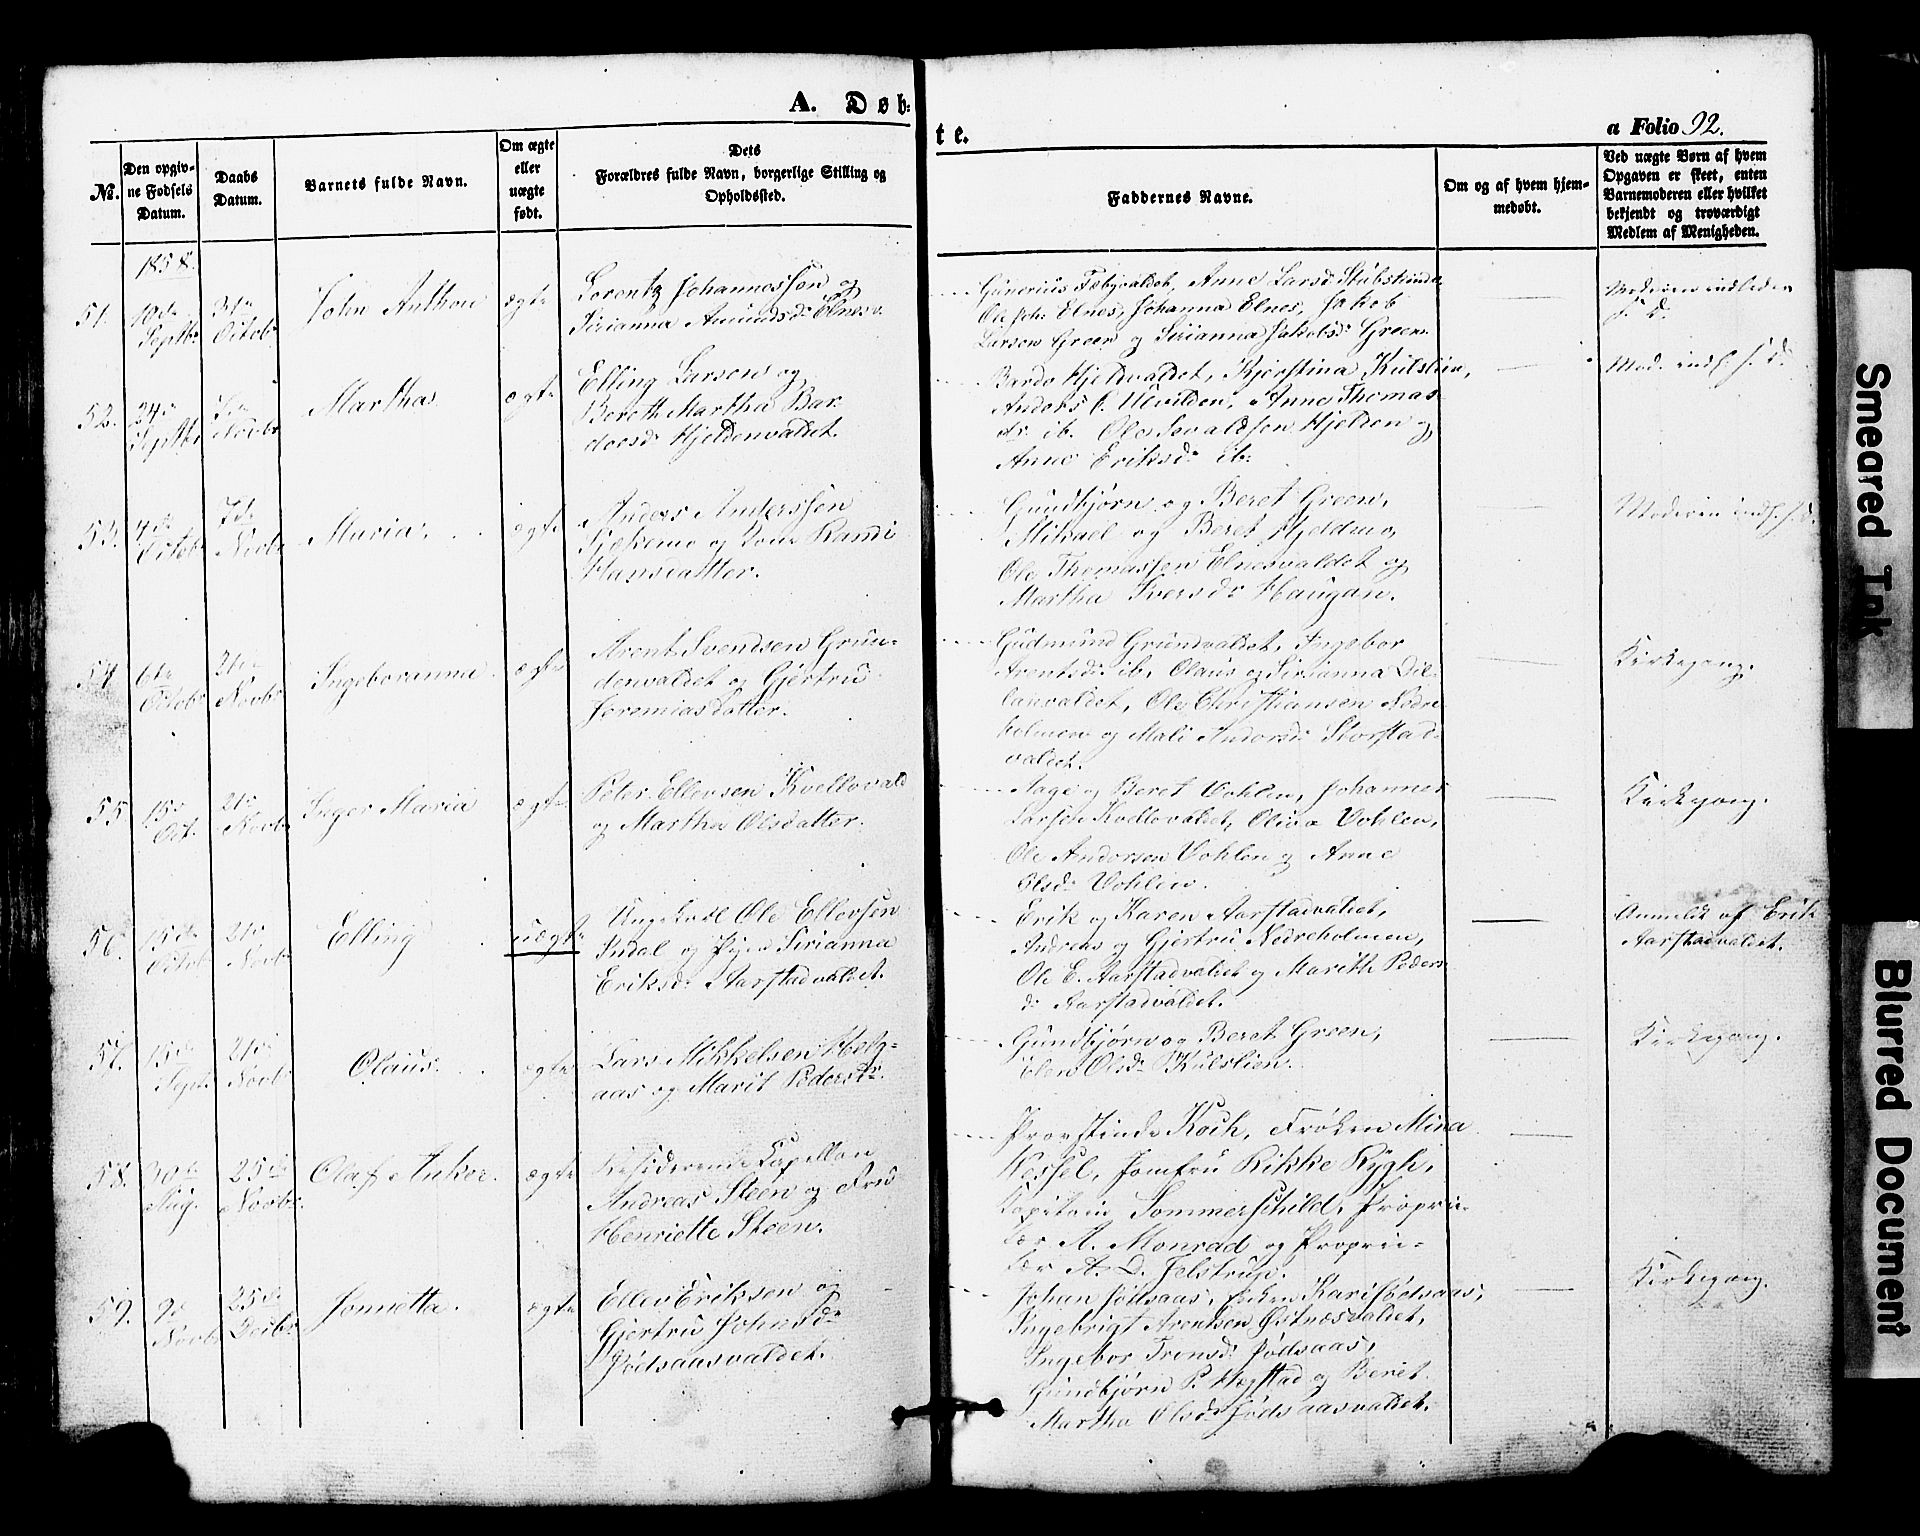 A. Døb:
te.
a Folio 92.
No.
Den opgiv-
ne Fødsels
Datum.
Daabs
Datum.
Barnets fulde Navn.
Om ægte
eller
uægte
født.
Dets
Forældres fulde Navn, borgerlige Stilling og
Opholdssted.
Faddernes Navne.
Om og af hvem hjem-
medøbt.
Ved uægte Børn af hvem
Opgaven er skeet, enten
Barnemoderen eller hvilket
bekjendt og troværdigt
Medlem af Menigheden.
1858.
51.
10de
Septbr
31te
Octobr
John Anthon
ægte
Lorentz Johannessen og
Sirianna Amundsdr Elnesv.
Gunerius Fæbyvaldet, Anne Larsdr Stubskind
Ole Joh. Elnes, Johanna Elnes, Jakob
Larsen Green og Sirianna Jakobsdr Green
Moderen indleden
s. D.
52.
24de
Septbr
7de
Novbr
Marthas
ægte
Elling Larsen og
Bereth Martha Bar-
doesdr Hjeldenvaldet.
Bardo Hjeldvaldet, Kjerstina Kulslien,
Anders O. Ulvilden, Anne Thomas
dr ib. Ole Sevaldsen Hjelden og
Anne Eriksdr ib.
Mod. indl. s. D.
53.
4de
Octobr
7de
Novbr
Maria.
ægte
Anders Anderssen
og Kone Randi
Hansdatter.
Gundbjørn og Beret Green,
Mikael og Beret Hjeldmo,
Ole Thomassen Elnesvaldet og
Martha Iversdr Haugan.
Moderen indl. s. D.
54.
6te
Octobr
21de
Novbr
Ingeboranna.
ægte
Arent Svendsen Grun-
denvaldet og Gjertru
Jeremiasdatter.
Gudmund Grundvaldet, Ingebor
Arentsdr ib, Olaus og Sirianna Dil-
lanvaldet, Ole Christiansen Nedre
holmen og Mali Andorsdr Storstad-
valdet.
Kirkegang.
55
15de
Oct.
21de
Novbr
Inger Maria
ægte
Peter Ellevsen Kvellovald
og Martha Olsdatter.
Aage og Beret Vohlen, Johannes
Larsen Kvellovaldet, Oliva Vohlen,
Ole Andorsen Vohlen og Anne
Olsdr Vohlen.
Kirkegang.
56.
15de
Octobr
21de
Novbr
Elling
uægte
Ungekarl Ole Ellevsen
Indal og Pige Sirianna
Eriksdr Aarstadvaldet.
Erik og Karen Aarstadvaldet,
Andreas og Gjertru Nedreholmen,
Ole E. Aarstadvaldet og Marith Peders
dr Aarstadvaldet.
Anmeldt af Erik
Aarstadvaldet.
57.
15de
Sept.
21de
Novbr
Olaus.
ægte
Lars Mikkelsen Helg-
aas og Marit Pedersdr.
Gundbjørn og Beret Green,
Elen Olsdr Kulslien.
Kirkegang.
58.
30te
Aug.
25de
Novbr.
Olaf Anker.
ægte
Residerende Capellan
Andreas Steen og Fru
Henriette Steen.
Provstinde Koch, Frøken Mina
Wessel, Jomfru Rikke Rygh,
Capitain Sommerschild, Proprie-
tær A. Monrad og Proprie-
tær A. D. Jelstrup.
59.
9de
Novbr
25de
Decbr
Jonetta.
ægte
Ellev Eriksen og
Gjertru Johnsdr
Jødsaasvaldet.
Johan Jødsaas, Kari Jødsaas,
Ingebrigt Arentsen Østnesvaldet,
Ingebor Trensdr Jødsaas,
Gundbjørn P. Hegstad og Beret
Martha Olsdr Jødsaasvaldet.
Kirkegang.
Smeared Ink
Blurred Document